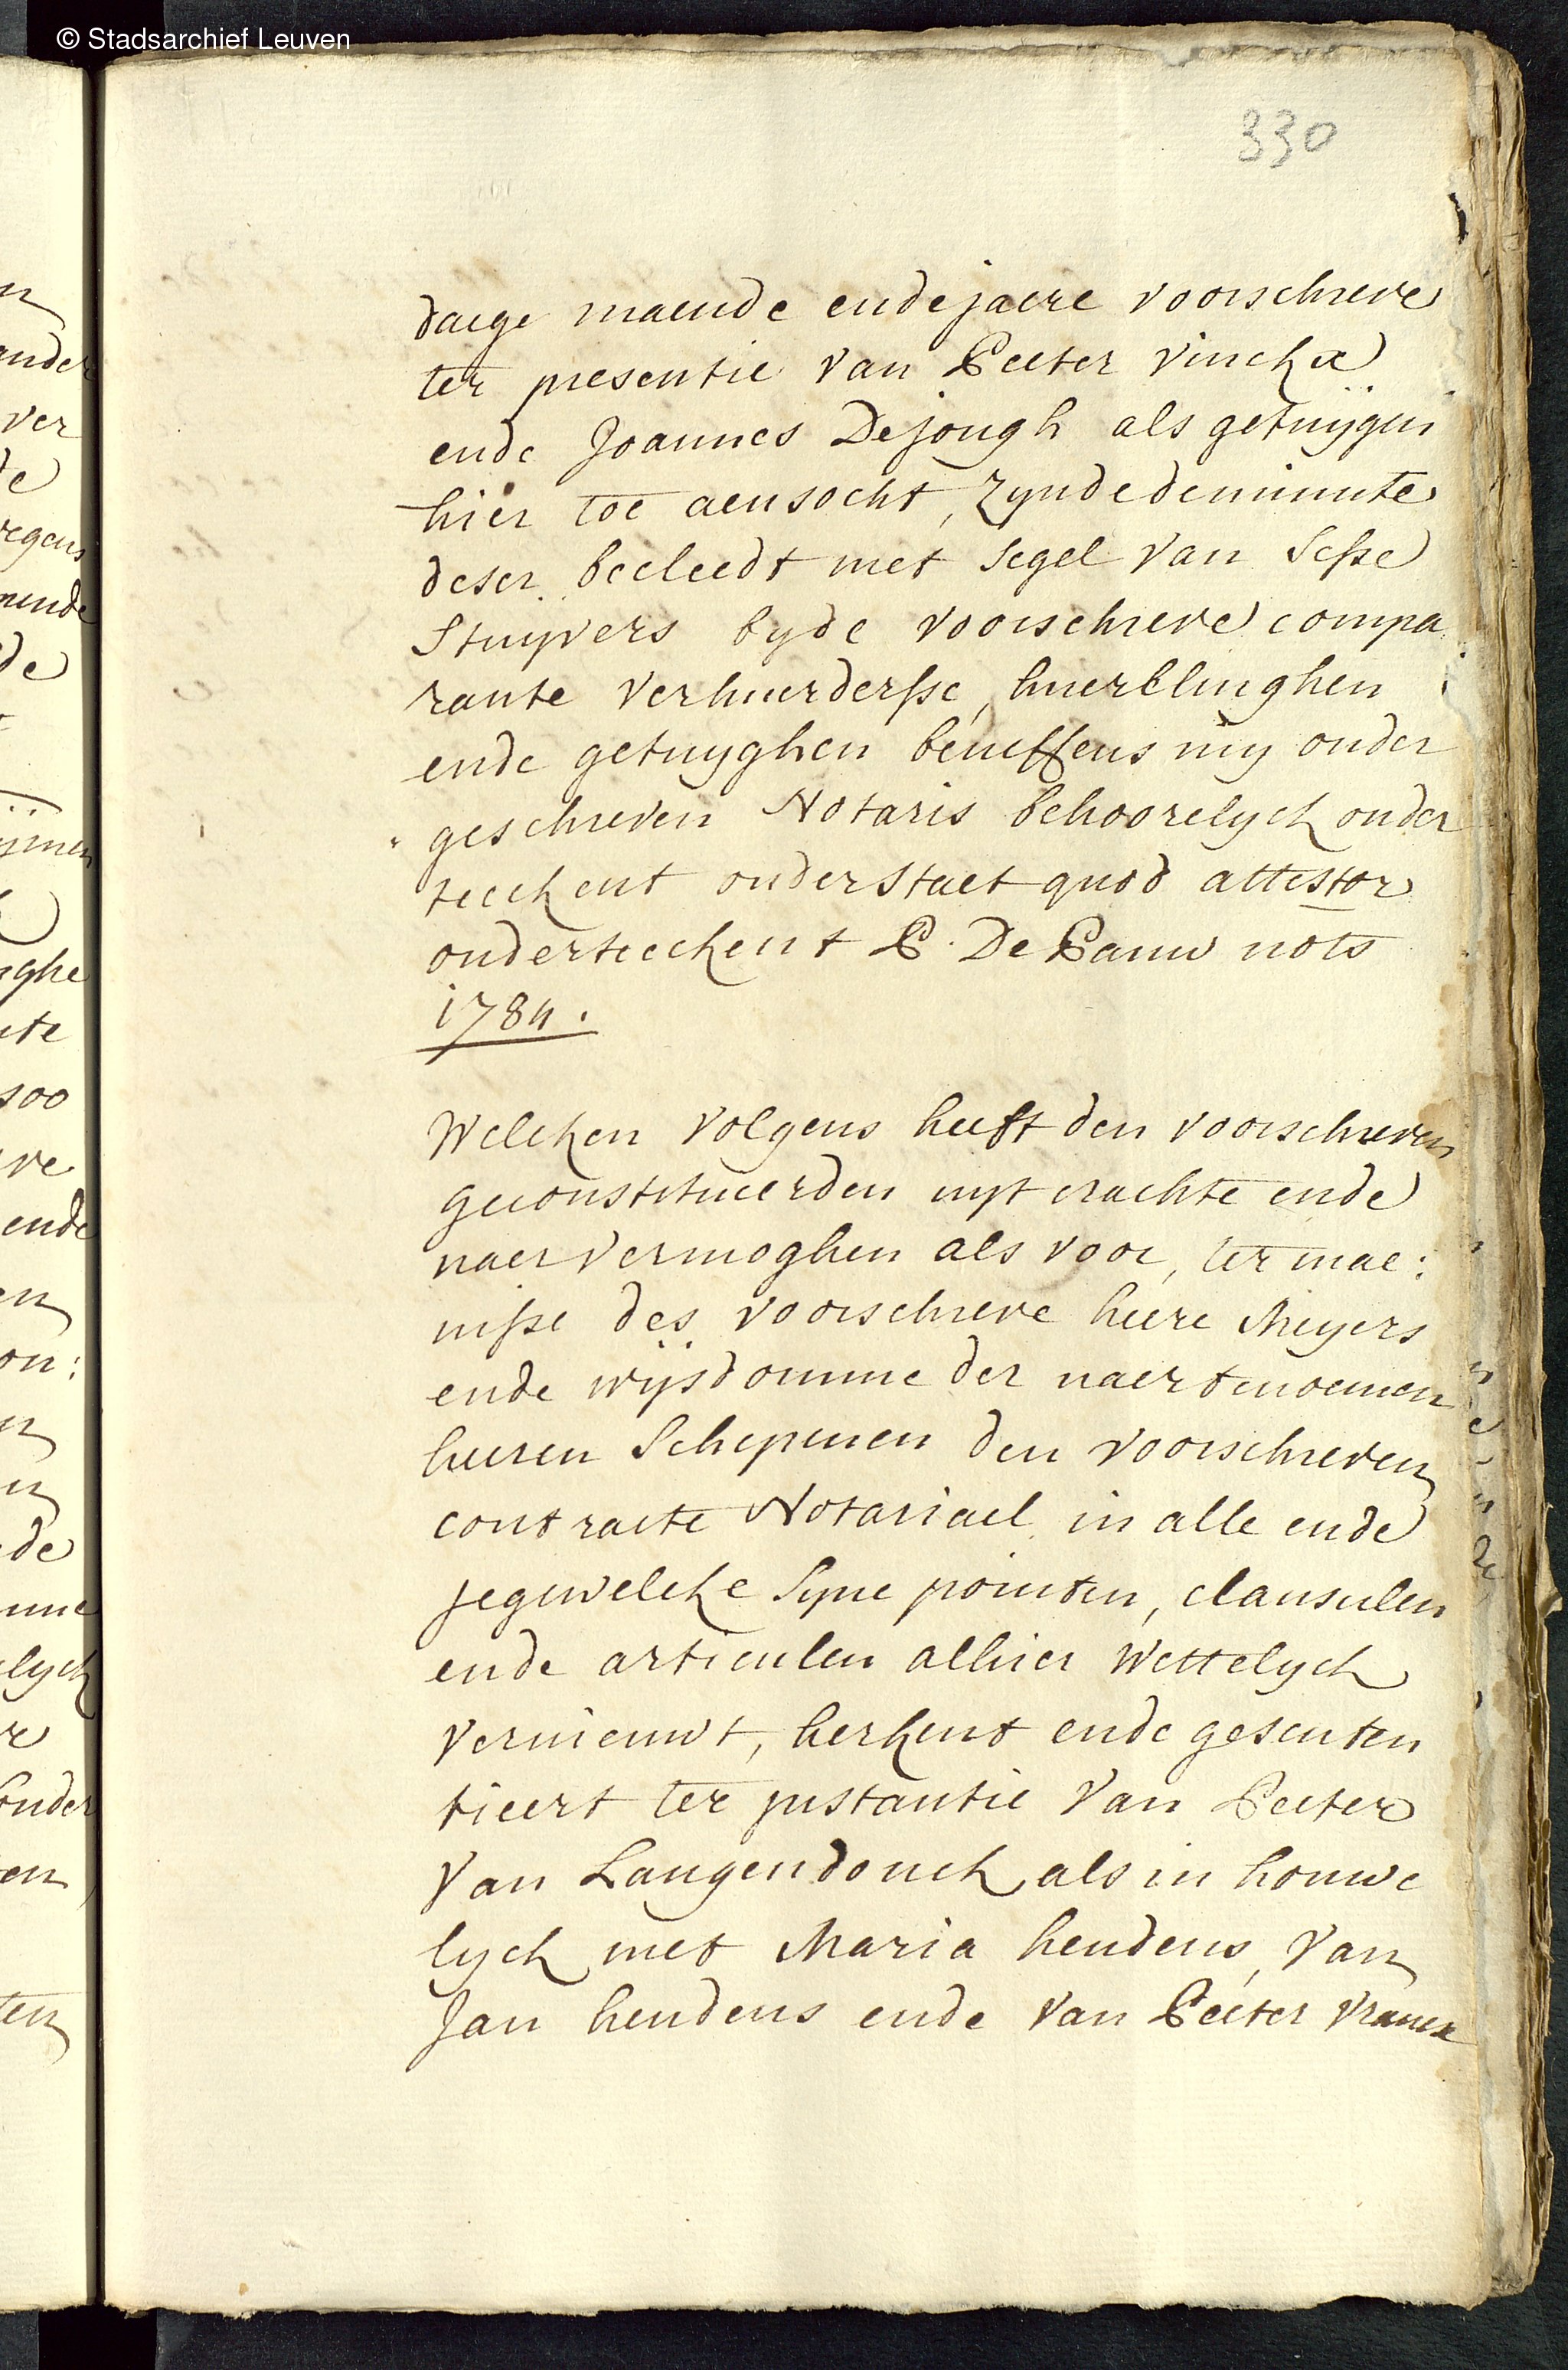 © Stadsarchief Leuven
330
daege maende ende jaere voorschreve
ter presentie van Peeter Vinckx
ende Joannes De jongh als getuijgen
hier toe aensocht, zynde de minute
deser becleedt met segel van sesse
stuyvers by de voorschreve compa
rante verhuerdersse, huerlinghen
ende getuyghen beneffens my onder
geschreven Notaris behoorelyck onder
teeckent onderstaet quod attestor
onderteeckent P. De Pauw nots
1784.
Welcken volgens heeft den voorschreven
geconstitueerden uyt crachte ende
naer vermoghen als voor, ter mae:
nisse des voorschreve heere Meyers
ende wijsdomme der naertenoemen
heeren Schepenen den voorschreven
contracte Notariael in alle ende
jegewelcke syne pointen, clausulen
ende articulen alhier wettelyck
vernieuwt, herkent ende gesenten
tieert ter instantie van Peeter
Van Langendonck als in houwe
lyck met Maria hendens, van
Jan hendens ende van Peeter Vranckx